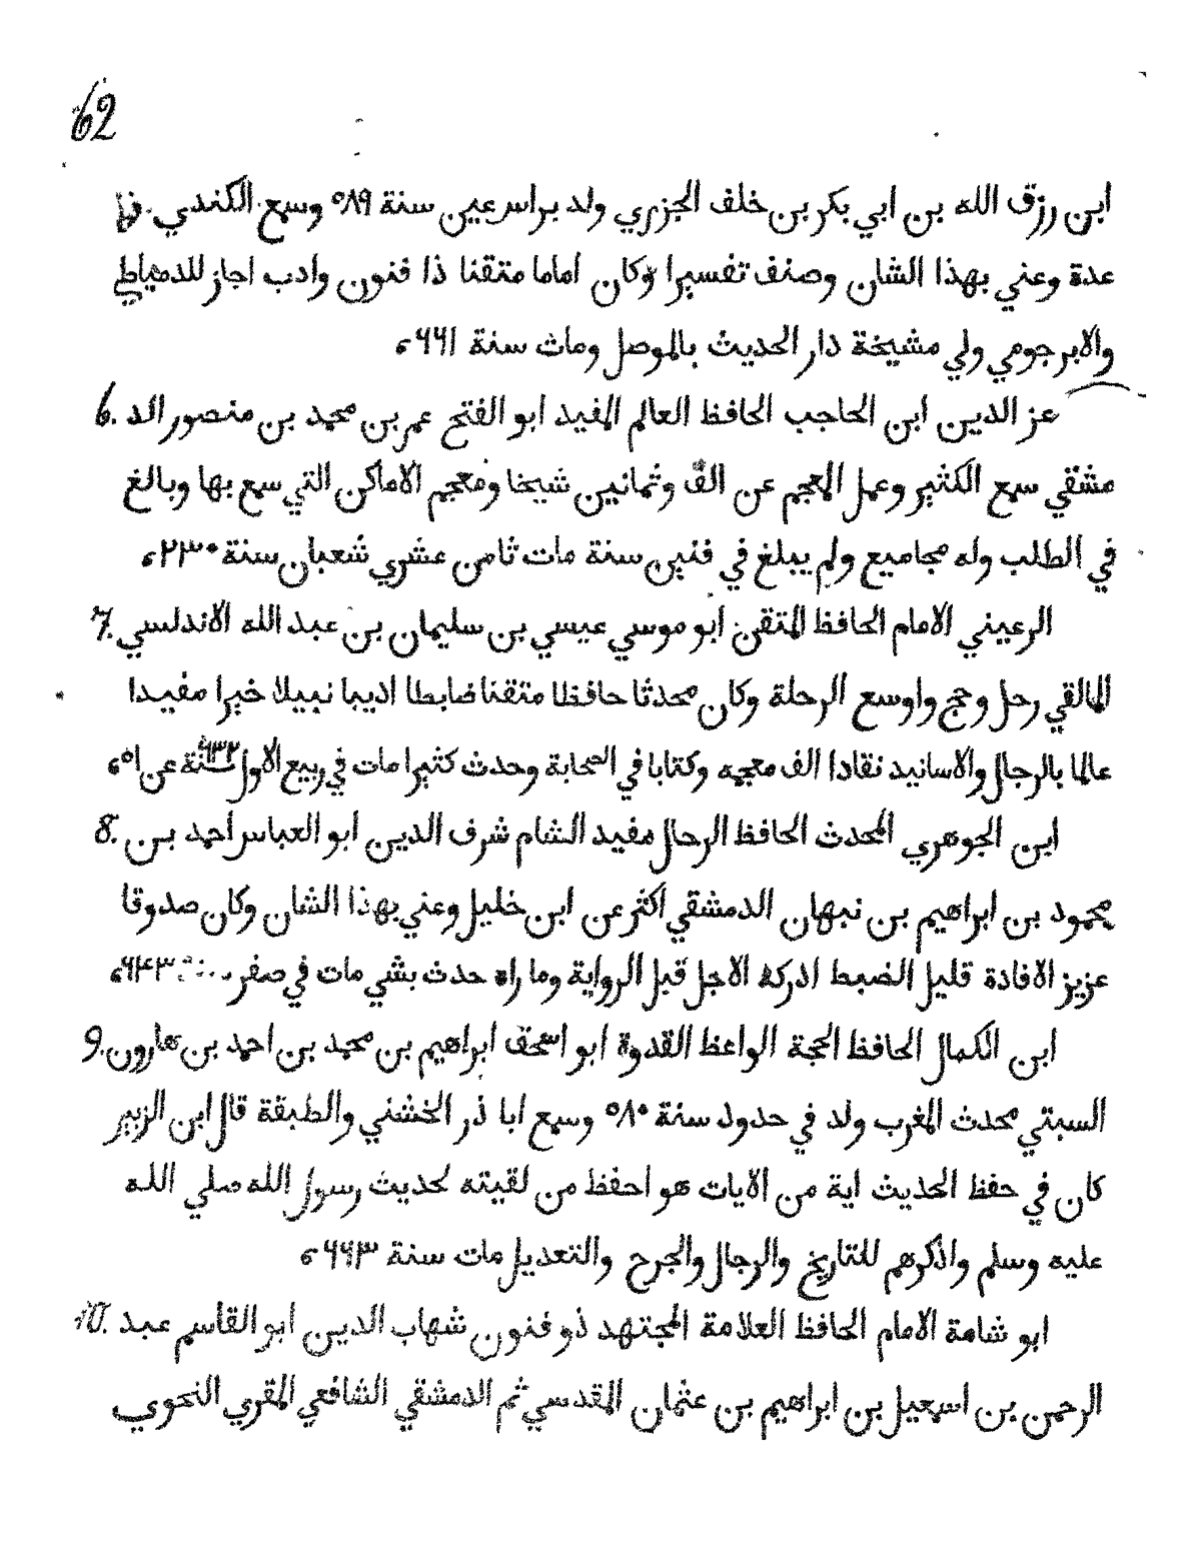 62
ابن رزق الله بن ابي بكر بن خلف الجزري ولد براسرعين سنة ٥٨٩ وسمع الكندي
عدة وعني بهذا الشان وصنف تفسيرا وكان اماما متقنا ذا فنون وادب اجاز للدمياطي
والابرجومي ولي مشيخة دار الحديث بالموصل ومات سنة ٦٦١
6. عز الدين ابن الحاجب الحافظ العالم المفيد ابو الفتح عمر بن محمد بن منصور الد
مشقي سمع الكثير وعمل المعجم عن الف وثمانين شيخا ومعجم الاماكن التي سمع بها وبالغ
في الطلب وله مجاميع ولم يبلغ في فنين سنة مات ثامن عشري شعبان سنة ٢٣٠
7. الرعيني الامام الحافظ المتقن ابو موسي عيسي بن سليمان بن عبد الله الاندلسي
المالقي رحل وحج واوسع الرحلة وكان محدثا حافظا متقنا ضابطا اديبا نبيلا خيرا مفيدا
عالما بالرجال والاسانيد نقادا الف معجمه وكتابا في الصحابة وحدث كثيرا مات في ربيع الاول سنة ٦٣٢ عن ٥١
8. ابن الجوهري المحدث الحافظ الرحال مفيد الشام شرف الدين ابو العباس احمد بن
محمود بن ابراهيم بن نبهان الدمشقي اكثر عن ابن خليل وعني بهذا الشان وكان صدوقا
عزيز الافادة قليل الضبط ادركه الاجل قبل الرواية وما راه حدث بشي مات في صفر سنة ٦٤٣
9. ابن الكمال الحافظ الحجة الواعظ القدوة ابو اسحق ابراهيم بن محمد بن احمد بن هارون
السبتي محدث المغرب ولد في حدود سنة ٥٨٠ وسمع ابا ذر الخشني والطبقة قال ابن الزبير
كان في حفظ الحديث اية من الايات هو احفظ من لقيته لحديث رسول الله صلي الله
عليه وسلم واذكرهم للتاريخ والرجال والجرح والتعديل مات سنة ٦٦٣
10. ابو شامة الامام الحافظ العلامة المجتهد ذو فنون شهاب الدين ابو القاسم عبد
الرحمن بن اسمعيل بن ابراهيم بن عثمان المقدسي ثم الدمشقي الشافعي المقري النحوي